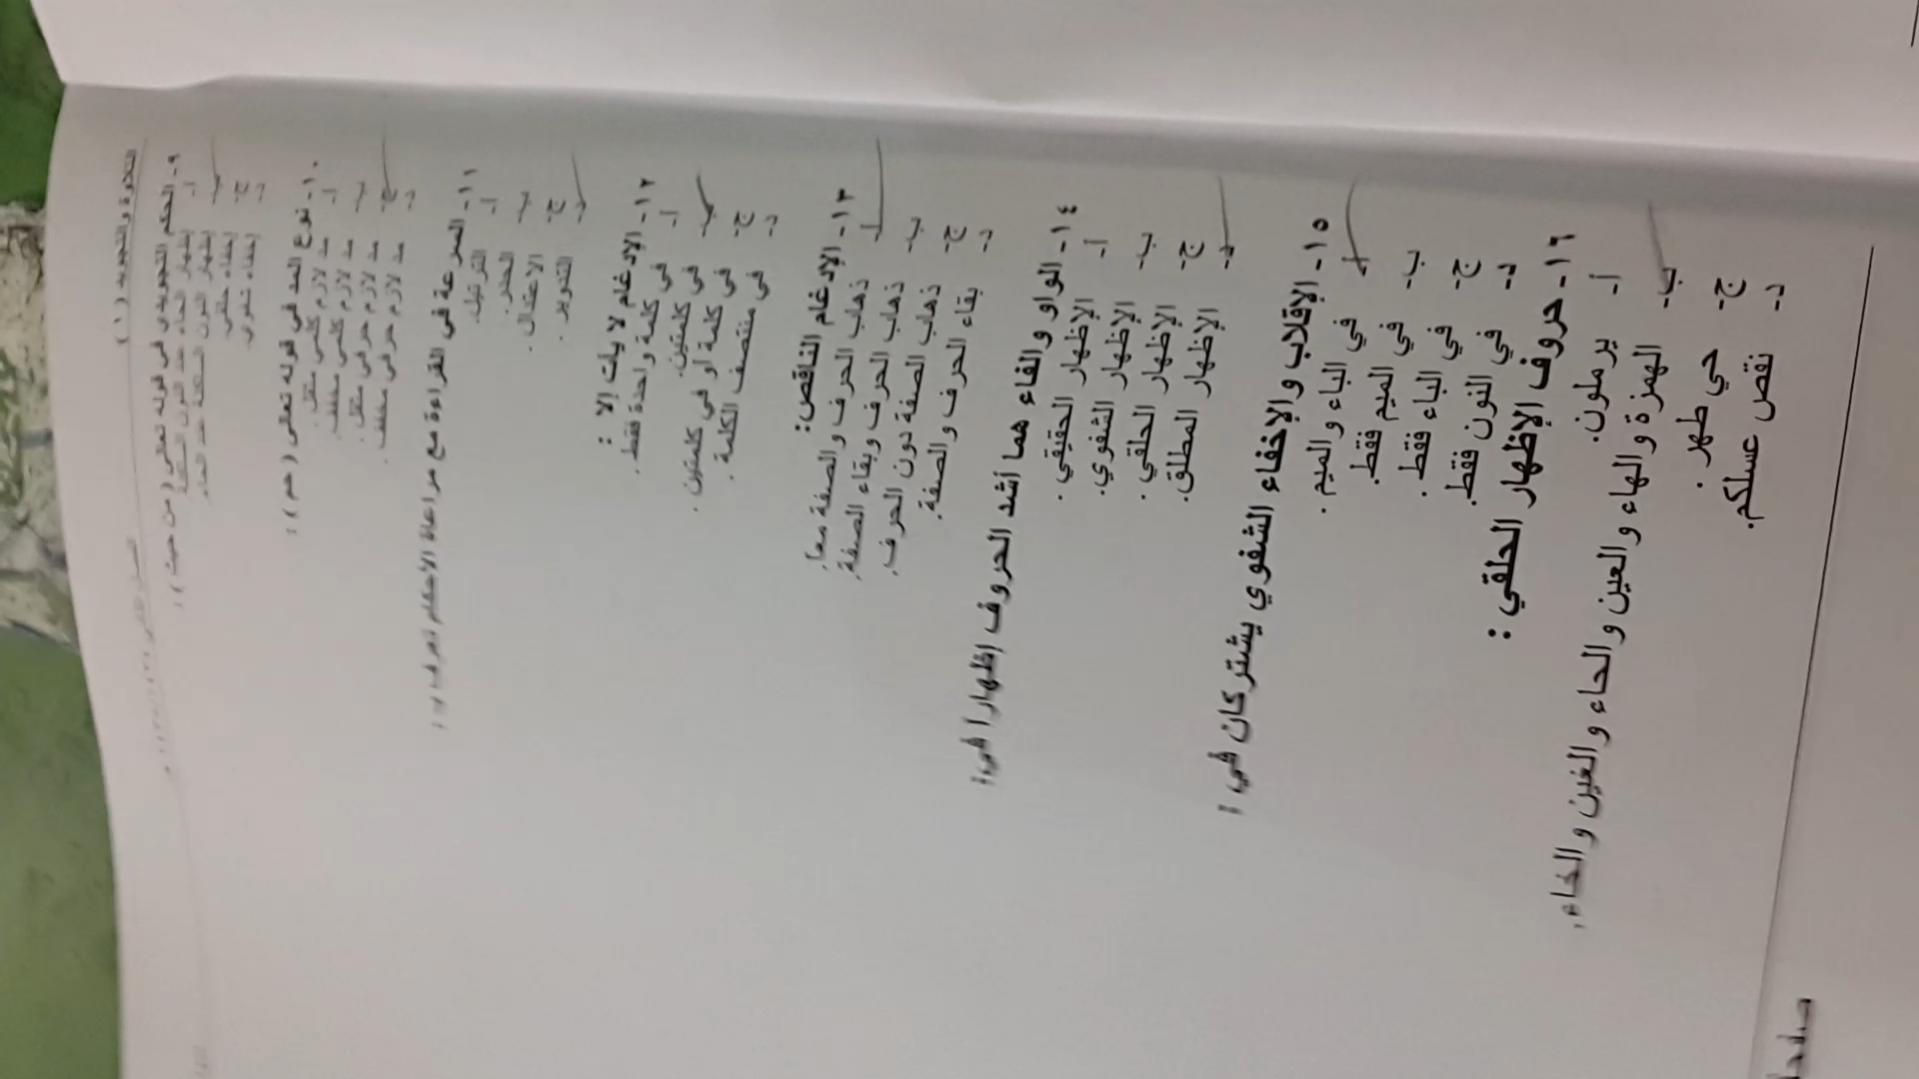 التلاوة والتجويد (١)
٩- الحكم التجويدي في قوله تعالى (من حيث):
أ- إظهار الحاء عند النون الساكنة
ب- إظهار النون الساكنة عند الحاء.
ج- إخفاء حلقي.
د- إخفاء شفوي.
١٠- نوع المد في قوله تعالى (حم):
أ- مد لازم كلمي مثقل.
ب- مد لازم كلمي مخفف.
ج- مد لازم حرفي مثقل.
د- مد لازم حرفي مخفف.
١١- السرعة في القراءة مع مراعاة الأحكام تعرف بـ:
أ- الترتيل.
ب- الحدر.
ج- الاعتدال.
د- التدوير.
١٢- الإدغام لا يأت إلا :
أ- في كلمة واحدة فقط.
ب- في كلمتين.
ج- في كلمة أو في كلمتين.
د- في منتصف الكلمة.
١٣- الإدغام الناقص:
أ- ذهاب الحرف والصفة معا.
ب- ذهاب الحرف وبقاء الصفة.
ج- ذهاب الصفة دون الحرف.
د- بقاء الحرف والصفة.
١٤- الواو والفاء هما أشد الحروف إظهارا في:
أ- الإظهار الحقيقي.
ب- الإظهار الشفوي.
ج- الإظهار الحلقي.
د- الإظهار المطلق.
١٥- الإقلاب والإخفاء الشفوي يشتركان في :
أ- في الباء والميم.
ب- في الميم فقط.
ج- في الباء فقط.
د- في النون فقط.
١٦- حروف الإظهار الحلقي :
أ- يرملون.
ب- الهمزة والهاء والعين والحاء والغين والخاء.
ج- حي طهر.
د- نقص عسلكم.